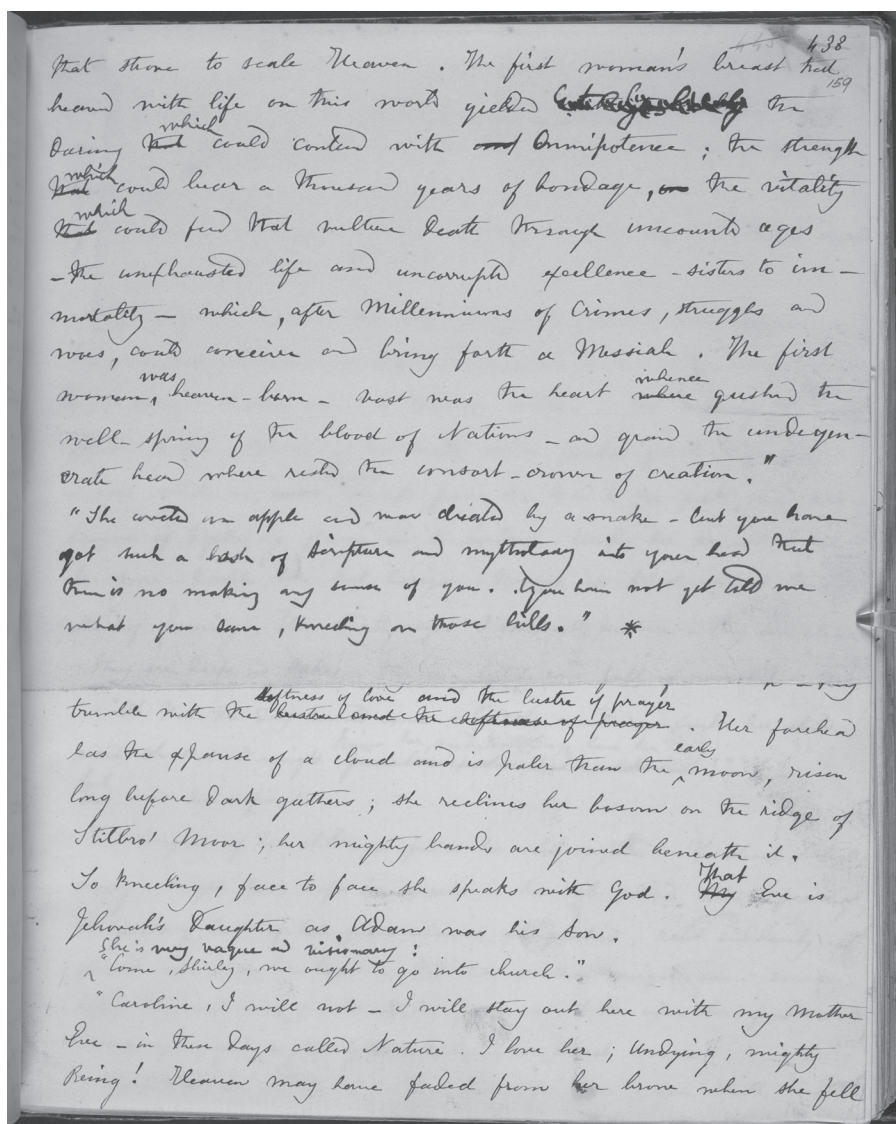 438
that strove to scale Heaven. The first woman's breast that
159
heaved with life on this world yielded the
which
daring that could contend with and Omnipotence; the strength
which
that could bear a thousand years of bondage, the vitality
which
that could feed that vulture Death through uncounted ages
– the unexhausted life and uncorrupted excellence – sisters to im–
mortality – which, after Millenniums of Crimes, struggles and
woes, could conceive and bring forth a Messiah. The first
was whence
woman, heaven-born – vast was the heart where gushed the
well-spring of the blood of Nations – and grand the undegen–
erate head where rested the consort-crown of creation."
"She coveted an apple and was cheated by a snake – but you have
got such a hash of Scripture and mythology into your head that
there is no making any sense of you. You have not yet told me
what you saw, kneeling on those hills." *
softness of love and the lustre of prayer
tremble with the lustre and the softness of prayer. Her forehead
early
has the expanse of a cloud and is paler than the moon, risen
long before dark gathers; she reclines her bosom on the ridge of
Stilbro' Moor; her mighty hands are joined beneath it.
That
So kneeling, face to face she speaks with God. My Eve is
Jehovah's Daughter as Adam was his son.
She is very vague and visionary!
"Come, Shirley, we ought to go into church."
"Caroline, I will not – I will stay out here with my Mother
Eve – in these days called Nature. I love her; Undying, mighty
Being! Heaven may have faded from her brow when she fell